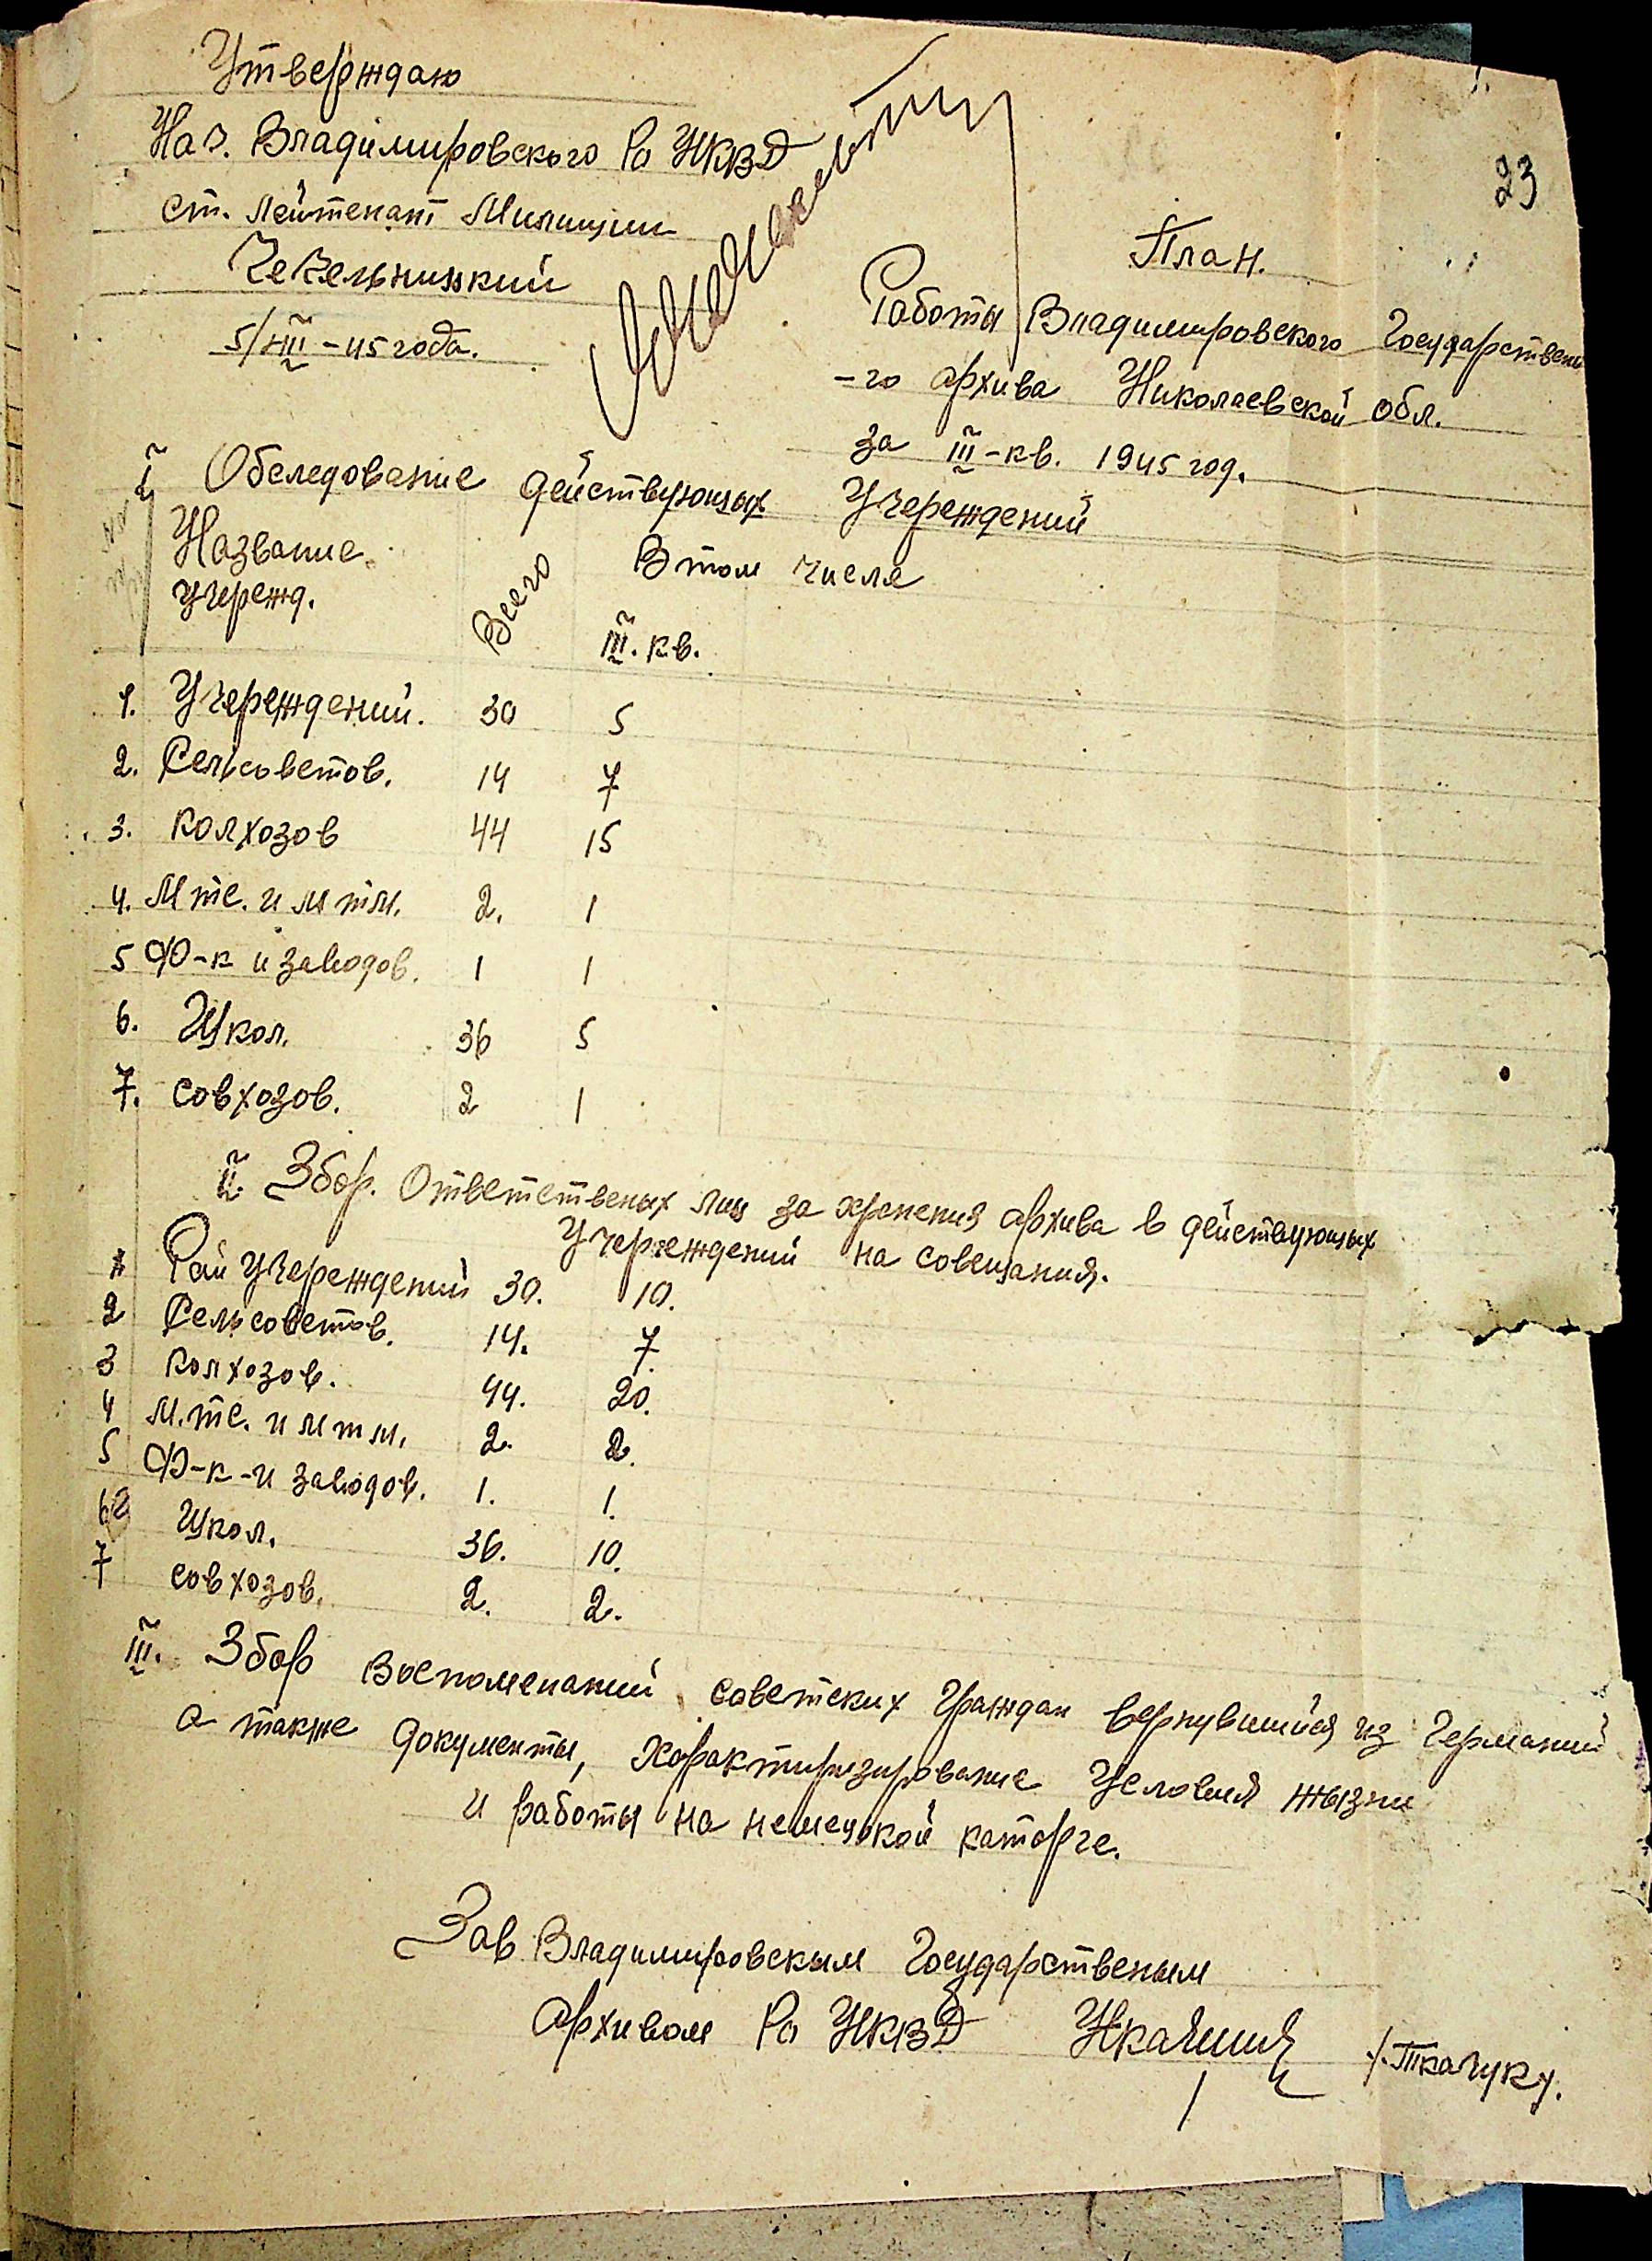 23
Утверждаю
Нач. Владимировского Ро НКВД
ст. лейтенант Милиции
Чечельницкий
5/VIII-45 года.
План.
Работы Владимировского Государствено
-го архива Николаевской обл.
за III-кв. 1945 год.
I Обследование действующых Учереждений
Название учрежд.
Всего
В том числе
III. кв.
1. Учереждений. 30 5
2. Сельсоветов. 14 7
3. колхозов 44 15
4. Мтс. и мтм. 2. 1
5 Ф-к и заводов. 1 1
6. Школ. 36 5
7. совхозов. 2 1
II Збор. Ответственых лиц за хренения архива в действующых
Учереждений на совещания.
1 Рай Учереждений 30. 10.
2 Сельсоветов. 14. 7.
3 колхозов. 44. 20.
4 М.тс. и мтм. 2. 2.
5 Ф-к-и заводов. 1. 1.
6 Школ. 36. 10.
7 совхозов. 2. 2.
III. Збор Воспоменаний советских Граждан вернувшийся из Германий
а также документы, Харак­тиризирование Условия жызни
и работы на немецкой каторге.
Зав Владимировскым Государственым
архивом Ро НКВД
/.Ткачук/.